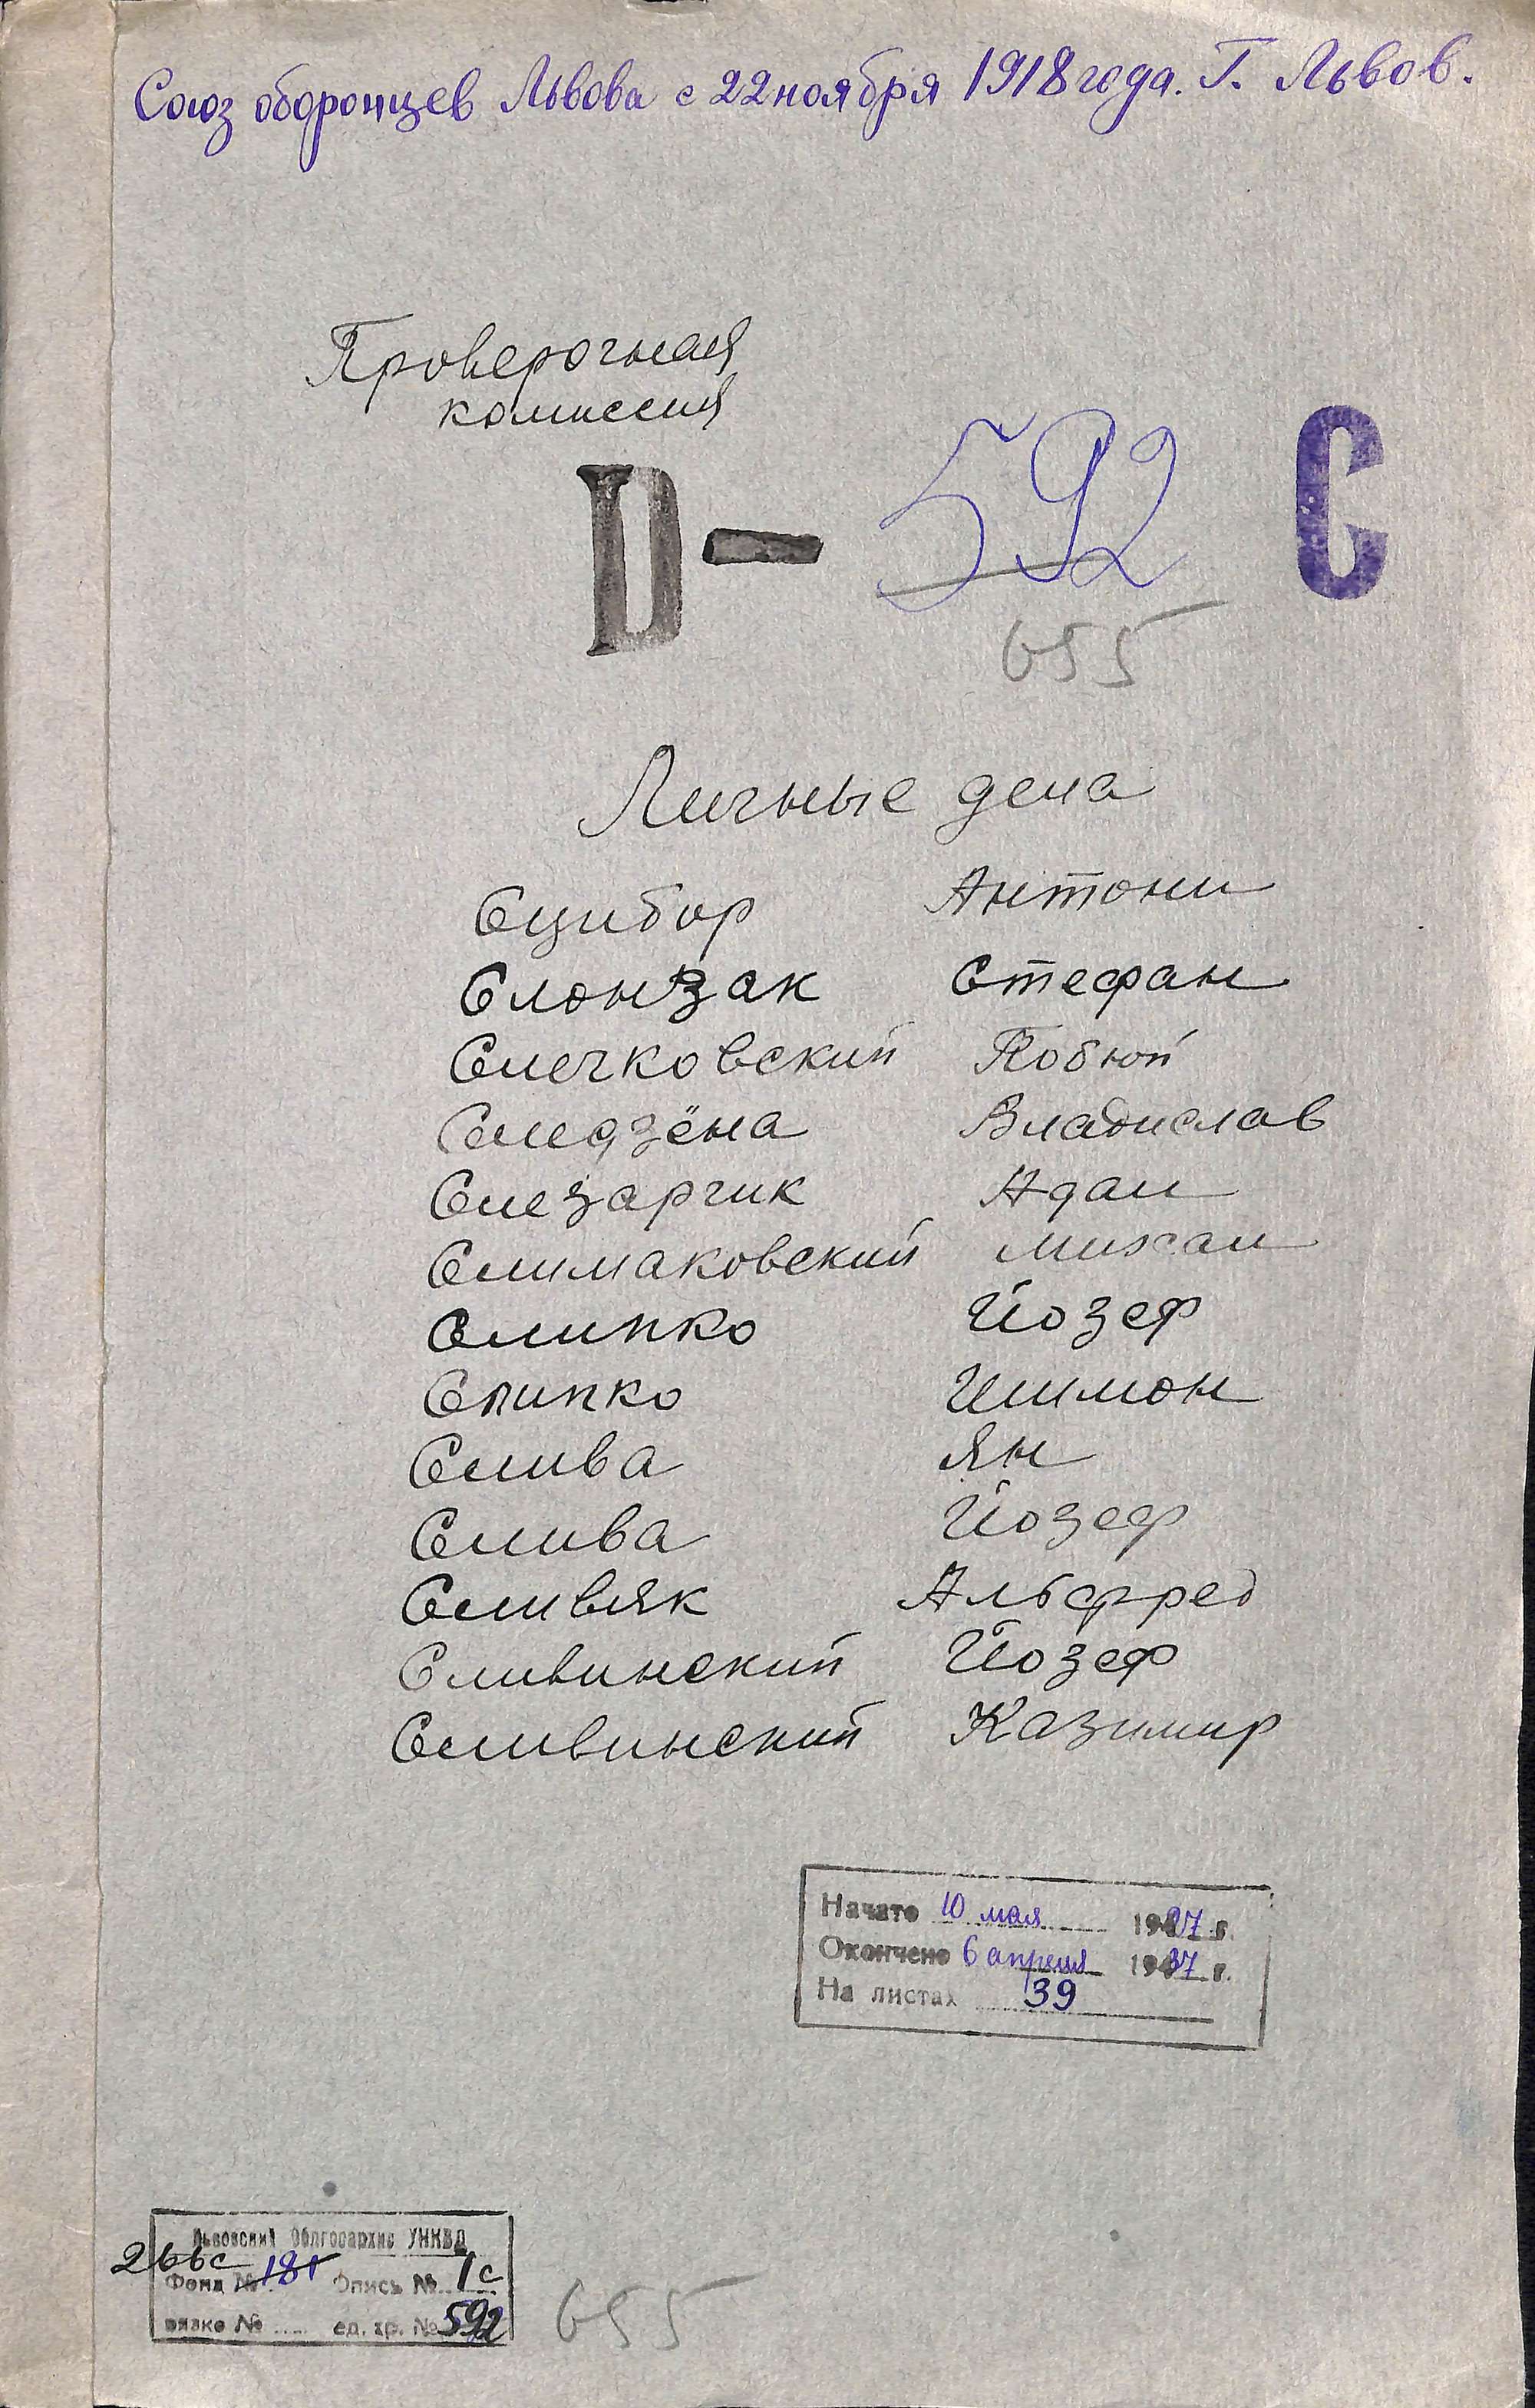 Союз оборонцев Львова с 22 ноября 1918 года. Г. Львов.
Проверочная
комиссия
D — 592 С
655
Личные дела
Сцибор Антони
Слонзак Стефан
Слечковский Тобюй
Следзёна Владислав
Слезарчик Адам
Слимаковский Михал
Слипко Йозеф
Слипко Шимон
Слива Ян
Слива Йозеф
Сливяк Альфред
Сливинский Йозеф
Сливинский Казимир
Начато 10 мая 1927 г.
Окончено 6 апреля 1937 г.
На листах 39
Львовский Облгосархив УНКВД
266с
Фонд № 181 Опись № 1с
вязка № ед. хр. № 592
655